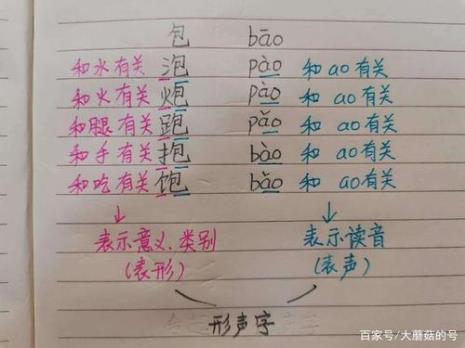 包 bāo
和水有关 泡 pào 和 ao 有关
和火有关 炮 pào 和 ao 有关
和腿有关 跑 pǎo 和 ao 有关
和手有关 抱 bào 和 ao 有关
和吃有关 饱 bǎo 和 ao 有关
↓ ↓
表示意义、类别 表示读音
(表形) (表声)
形声字
百家号/大蘑菇的号